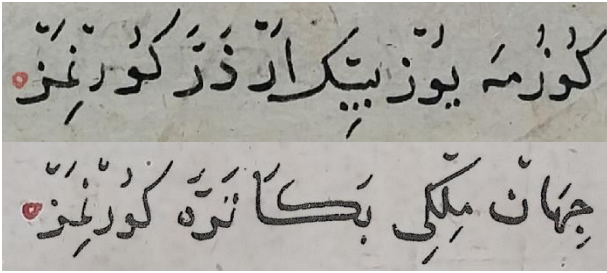 كُوزُمَه يُوْزْ بِيِنْك اَرْ ذَرَّ كُورُنِمَزْ
جِهَانْ مِلْكِي بَكَا نَرَّه كُورُنْمَزْ